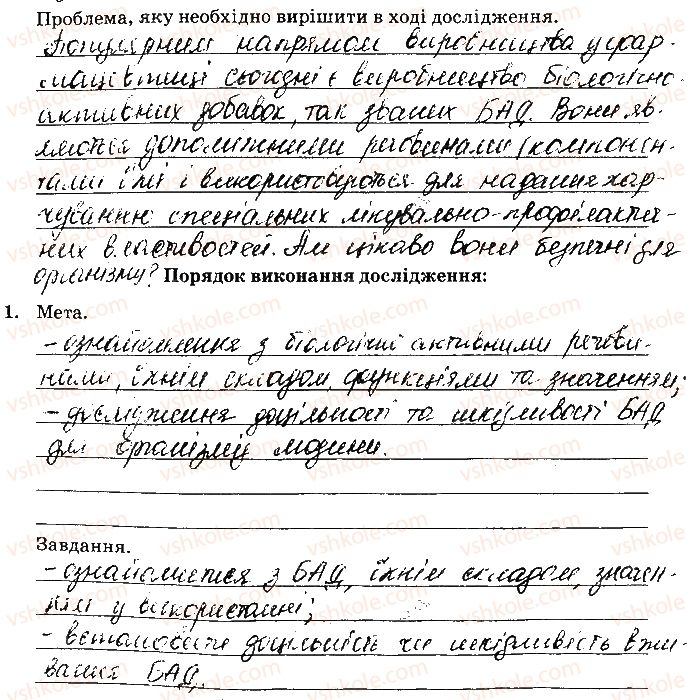 Проблема, яку необхідно вирішити в ході дослідження.
Популярним напрямом виробництва у фар-
мацевтиці сьогодні є виробництво біологічно
активних добавок, так званих БАД. Вони яв-
ляються допоміжними речовинами (компонен-
тами їжі і використовуються для надання хар-
чуванню спеціальних лікувально-профілактич-
них властивостей. Ам цікаво вони безпечні для
організму? Порядок виконання дослідження:
1. Мета.
- ознайомлення з біологічні активними речови-
нами, їхнім складом, функціями та значенням;
- дослідження доцільності та шкідливості БАД
для організму людини.
Завдання.
- ознайомитися з БАД, їхнім складом, значен-
ням у використанні;
- встановити доцільність чи шкідливість вжи-
вання БАД.